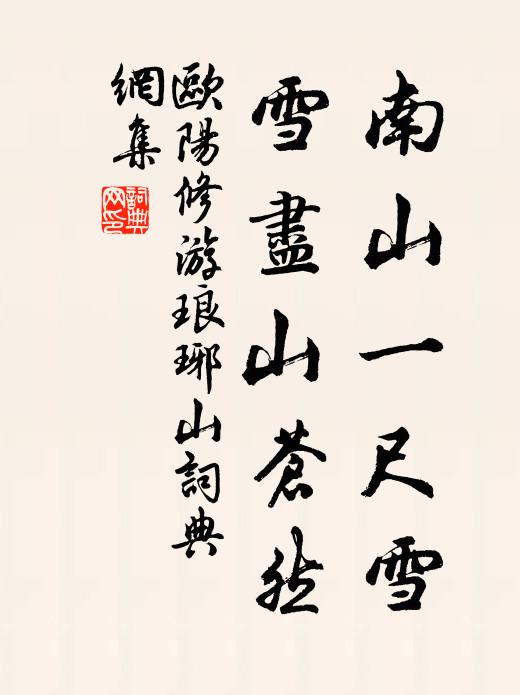 南山一尺雪
雪盡山蒼然
歐陽修游琅琊山詞典
網集
詞典
网印